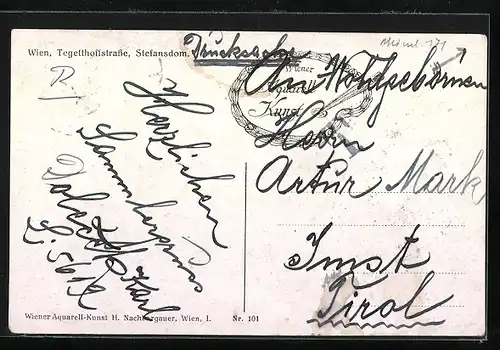 Wien, Tegetthoffstraße, Stefansdom.
Drucksache
Wiener
Aquarell
Kunst
An Wohlgeboren
Herrn
Artur Mark
Imst
Tirol
Herzlichen
Sammlergruss
Wiener Aquarell-Kunst H. Nachbargauer, Wien, I. Nr. 101